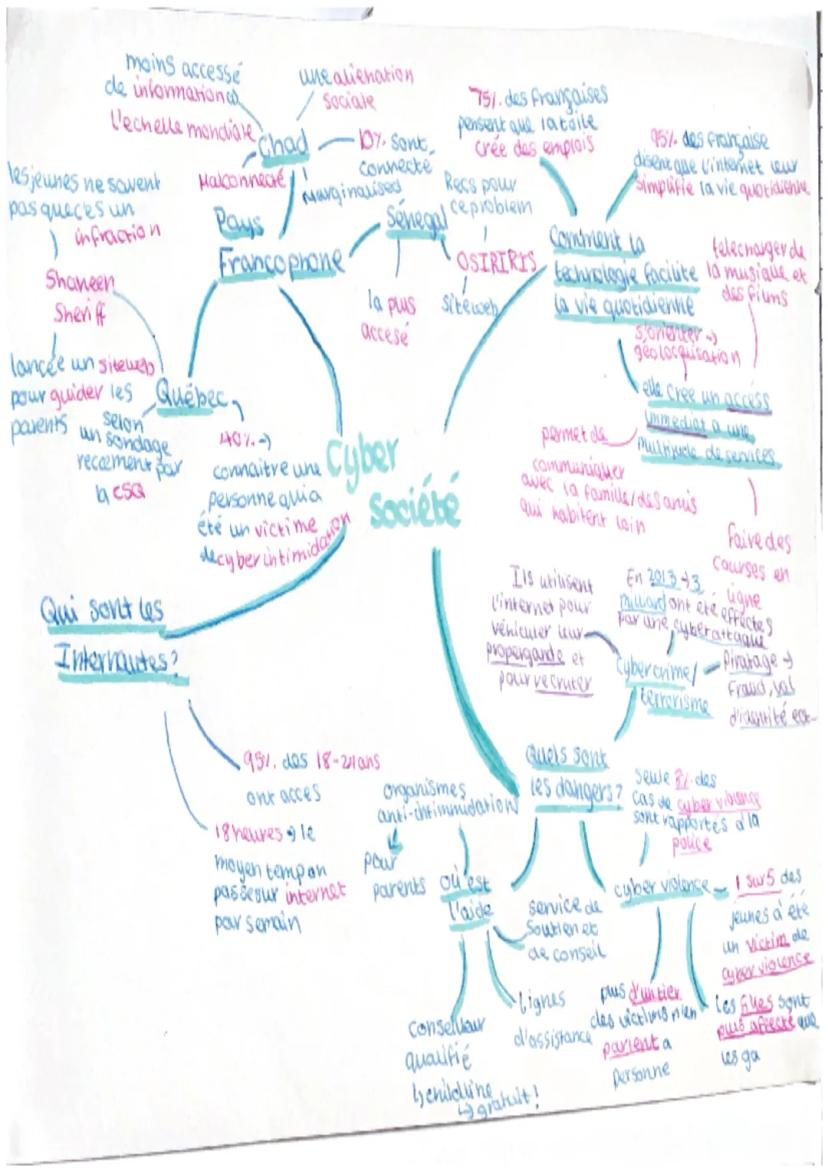 Cyber
société
Pays
Francophone
Chad
moins accessé
de informations
L'echelle mondiale
une alienation
sociale
10% sont
connecté
Marginalised
Malconnecté
Sénégal
la plus
accesé
OSIRIRIS
Recs pour
ce problem
siteweb
Québec
Shaheen
Sheriff
les jeunes ne savent
pas que c'es un
infraction
lancée un siteweb
pour guider les
parents
selon
un sondage
recement par
la CSQ
40% →
connaitre une
personne qui a
été un victime
de cyber intimidation
Comment la
technologie facilite
la vie quotidienne
75% des Françaises
pensent que la toile
crée des emplois
95% des Française
disent que l'internet leur
simplifie la vie quotidienne
elle crée un access
immediat a une
multitude de services
telecharger de
la musique et
des films
s'orienter →
géolocalisation
permet de
communiquer
avec la famille/des amis
qui habitent loin
Faire des
courses en
ligne
Qui sont les
Internautes?
95% des 18-24 ans
ont acces
18 heures → le
moyen temp on
passe sur internet
par semain
Quels sont
les dangers?
Cybercrime/
terrorisme
Ils utilisent
l'internet pour
véhiculer leur
propergande et
pour recruter
En 2013 → 3
milliard ont été effectes
par une cyberattaque
Piratage →
Fraud, vol
d'identité ect
cyber violence
Seule 8% des
cas de cyber violence
sont rapportés á la
police
1 sur 5 des
jeunes a été
un victim de
cyber violence
les filles sont
plus affecté que
les ga
plus d'un tier
des victims n'en
parlent a
personne
où est
l'aide
organismes
anti-intimmidation
pour
parents
service de
soutien et
de conseil
lignes
d'assistance
conseilleur
qualifié
↳ childline
↳ gratuit!